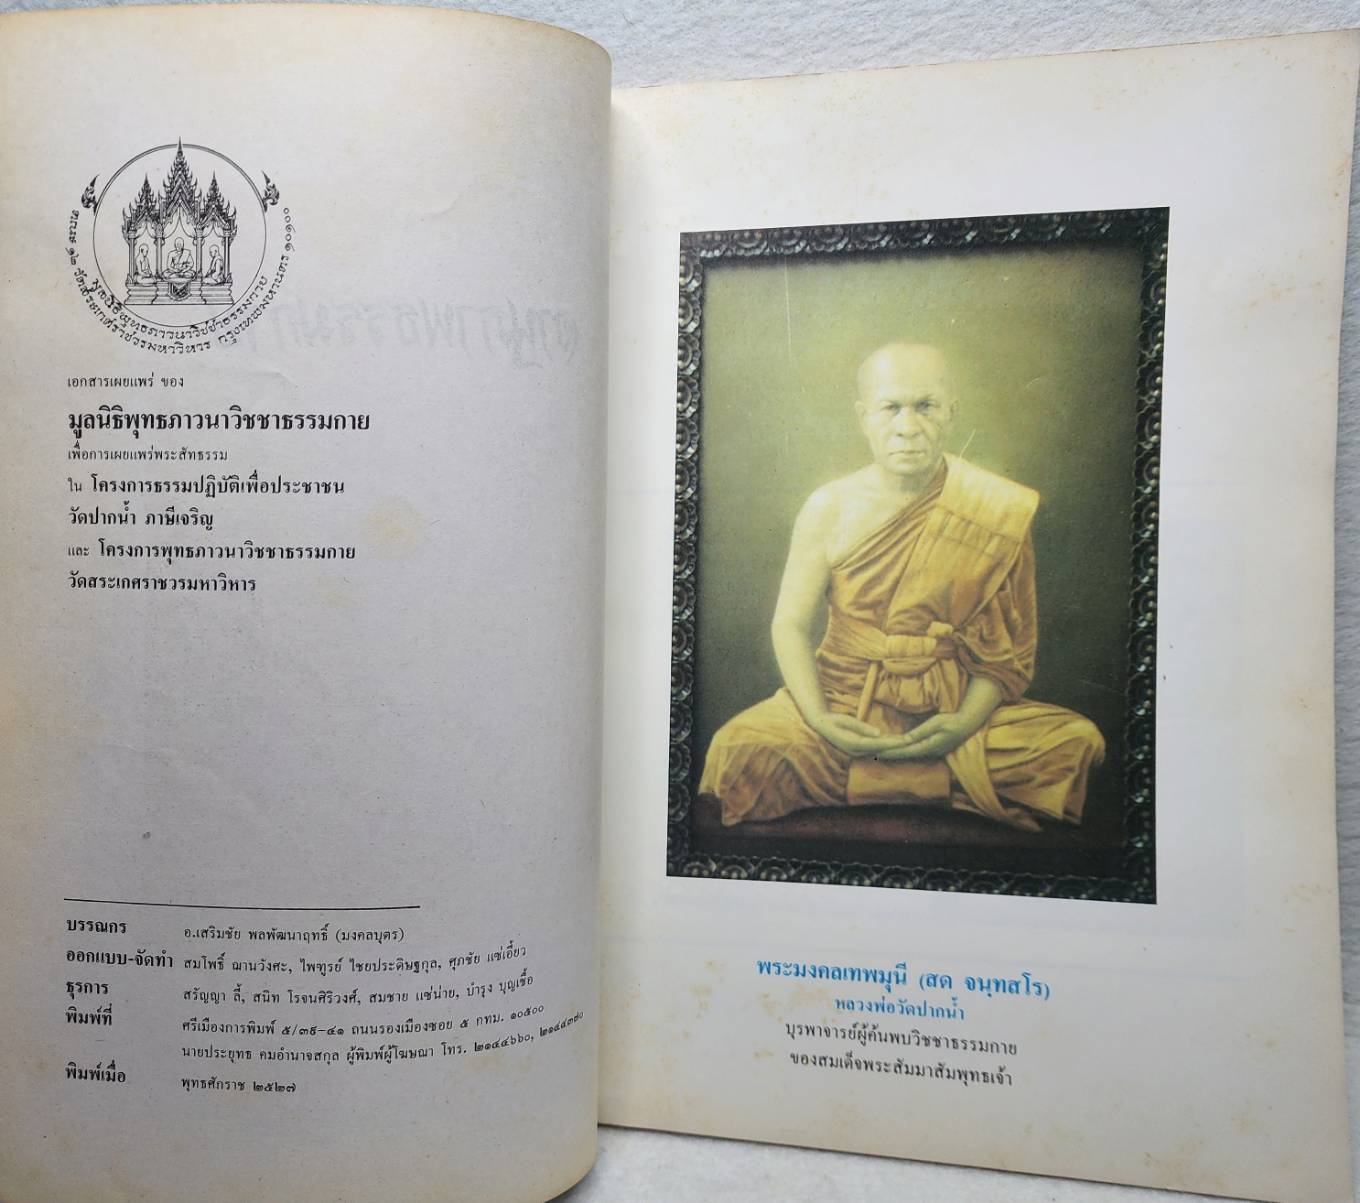 คณะ ๑๒ วัดสระเกศราชวรมหาวิหาร กรุงเทพมหานคร ๑๐๑๐๐
มูลนิธิพุทธภาวนาวิชชาธรรมกาย
เอกสารเผยแพร่ ของ
มูลนิธิพุทธภาวนาวิชชาธรรมกาย
เพื่อการเผยแพร่พระสัทธรรม
ใน โครงการธรรมปฏิบัติเพื่อประชาชน
วัดปากน้ำ ภาษีเจริญ
และ โครงการพุทธภาวนาวิชชาธรรมกาย
วัดสระเกศราชวรมหาวิหาร
บรรณกร อ.เสริมชัย พลพัฒนาฤทธิ์ (มงคลบุตร)
ออกแบบ-จัดทำ สมโพธิ์ ฌานวังศะ, ไพฑูรย์ ไชยประดิษฐกุล, ศุภชัย แซ่เอี้ยว
ธุรการ สรัญญา ลี้, สนิท โรจนศิริวงศ์, สมชาย แซ่น่าย, บำรุง บุญเชื้อ
พิมพ์ที่ ศรีเมืองการพิมพ์ ๕/๓๙-๔๑ ถนนรองเมืองซอย ๕ กทม. ๑๐๕๐๐
นายประยุทธ คมอำนาจสกุล ผู้พิมพ์ผู้โฆษณา โทร. ๒๑๔๔๖๖๐, ๒๑๔๔๓๗๐
พิมพ์เมื่อ พุทธศักราช ๒๕๒๗
พระมงคลเทพมุนี (สด จนฺทสโร)
หลวงพ่อวัดปากน้ำ
บุรพาจารย์ผู้ค้นพบวิชชาธรรมกาย
ของสมเด็จพระสัมมาสัมพุทธเจ้า